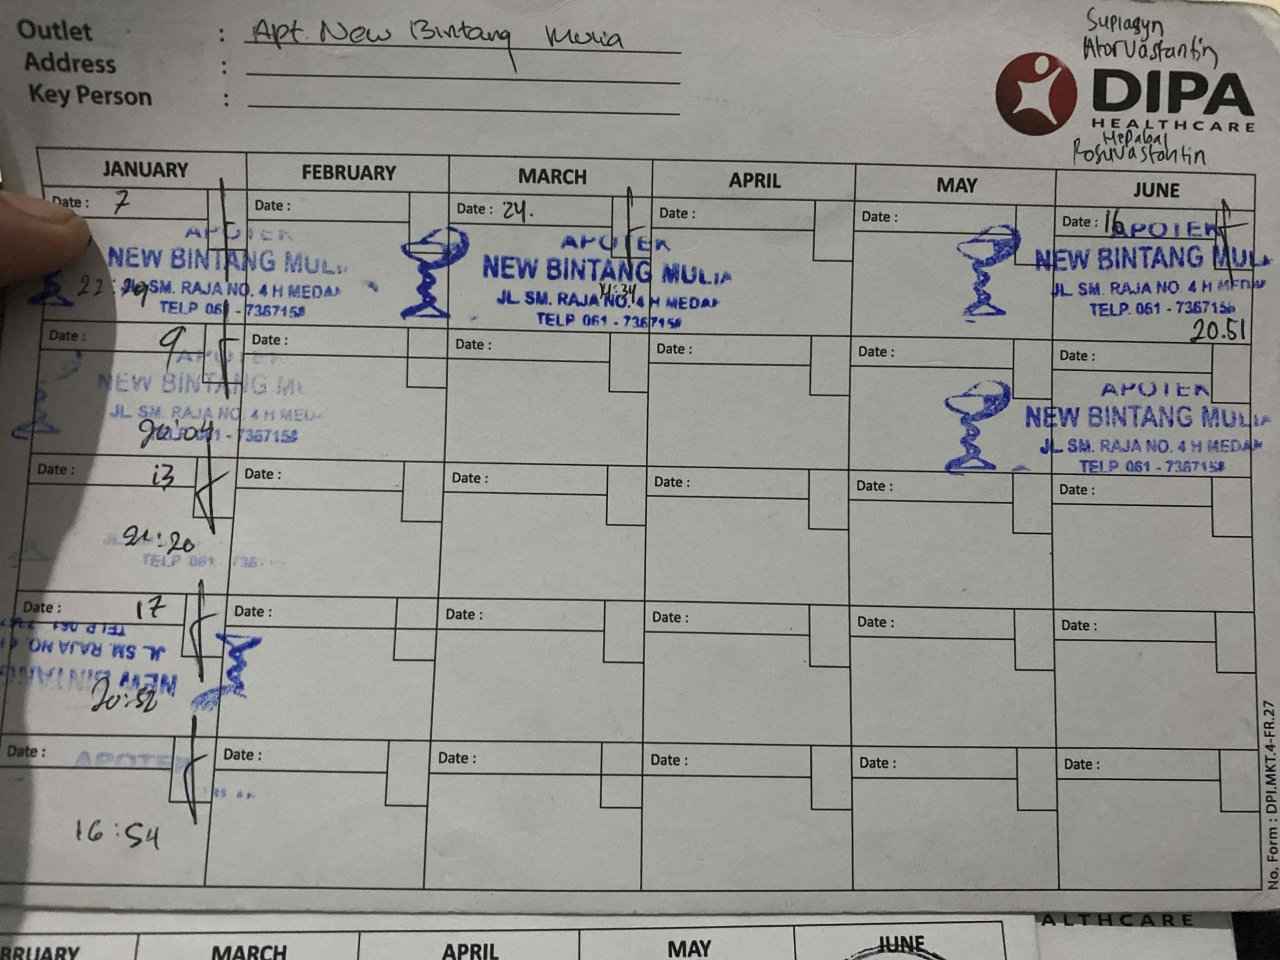 Outlet : Apt. New Bintang Mulia
Address :
Key Person :
Suplasyn
Atorvastantin
DIPA
HEALTHCARE
Mepabal
Rosuvastantin
JANUARY FEBRUARY MARCH APRIL MAY JUNE
Date : 7 Date : Date : 24. Date : Date : Date : 16
APOTEK
NEW BINTANG MULI
SM. RAJA NO. 4 H MEDAN
TELP 061 - 7367158
APOTEK
NEW BINTANG MULIA
JL SM. RAJA NO. 4 H MEDAN
TELP 061 - 7367158
APOTEK
NEW BINTANG MULIA
JL SM. RAJA NO. 4 H MEDAN
TELP. 061 - 7367158
20.51
Date : 9 Date : Date : Date : Date : Date :
APOTEK
NEW BINTANG MU
JL SM. RAJA NO. 4 H MEDA
061 - 7367158
20:04
APOTEK
NEW BINTANG MULIA
JL SM. RAJA NO. 4 H MEDAN
TELP 061 - 7367158
Date : 13 Date : Date : Date : Date : Date :
21:20
TELP 061 736
Date : 17 Date : Date : Date : Date : Date :
TELP 061
JL SM. RAJA NO. 4
NEW BINTANG
20:52
Date : Date : Date : Date : Date : Date :
APOTEK
16:54
No. Form : DPI.MKT.4-FR.27
ALTHCARE
BRUARY MARCH APRIL MAY JUNE